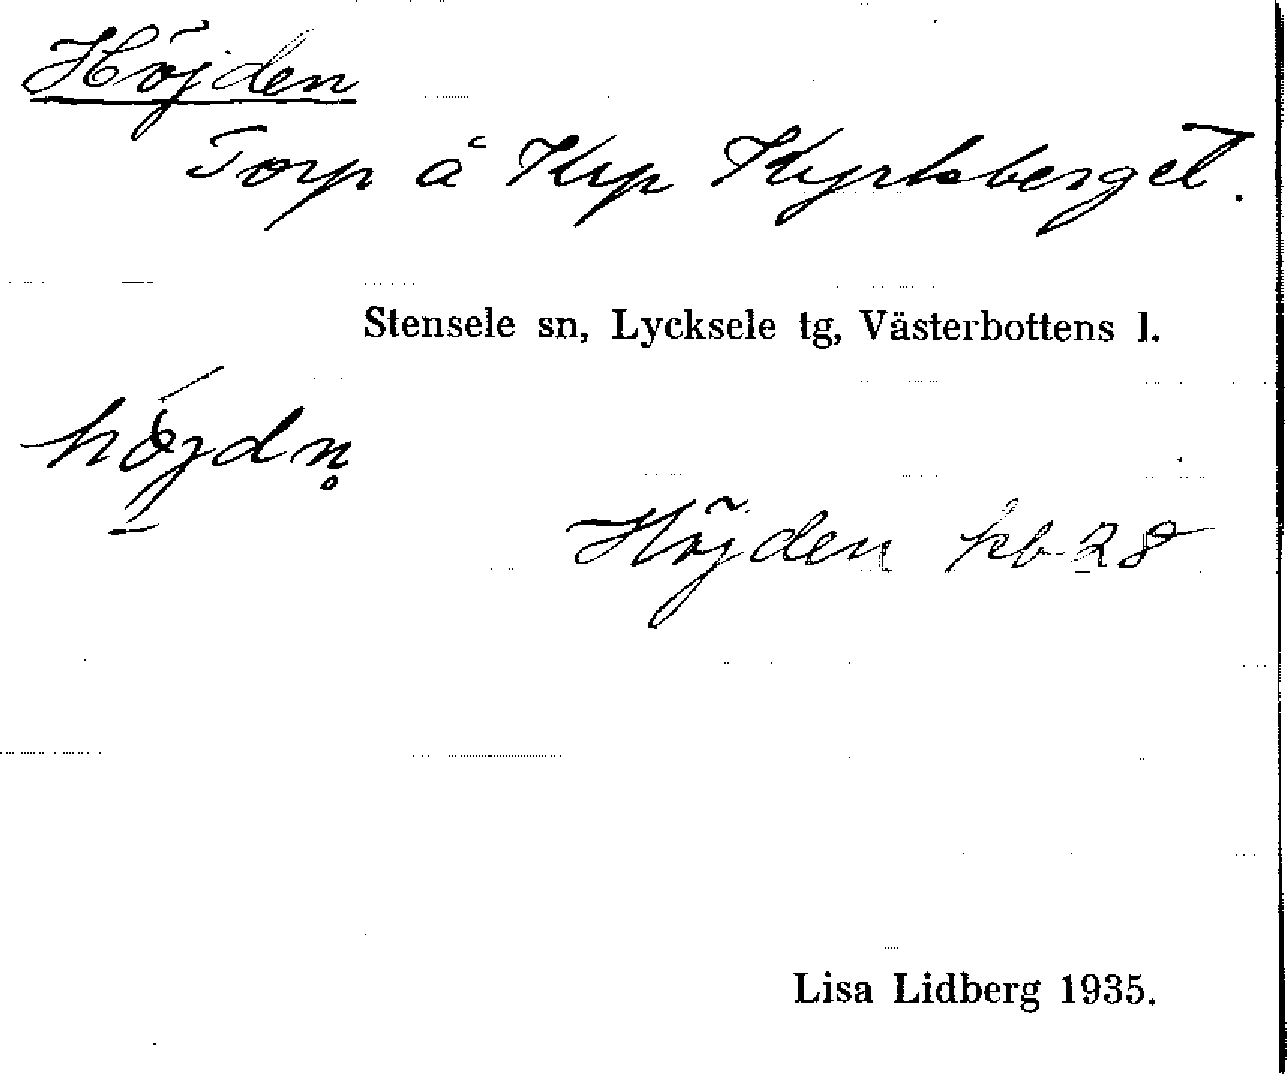 Höjden
Torp å Krp Kyrkberget.
Stensele sn, Lycksele tg, Västerbottens l.
höjdn̥
Höjden kb 28
Lisa Lidberg 1935.